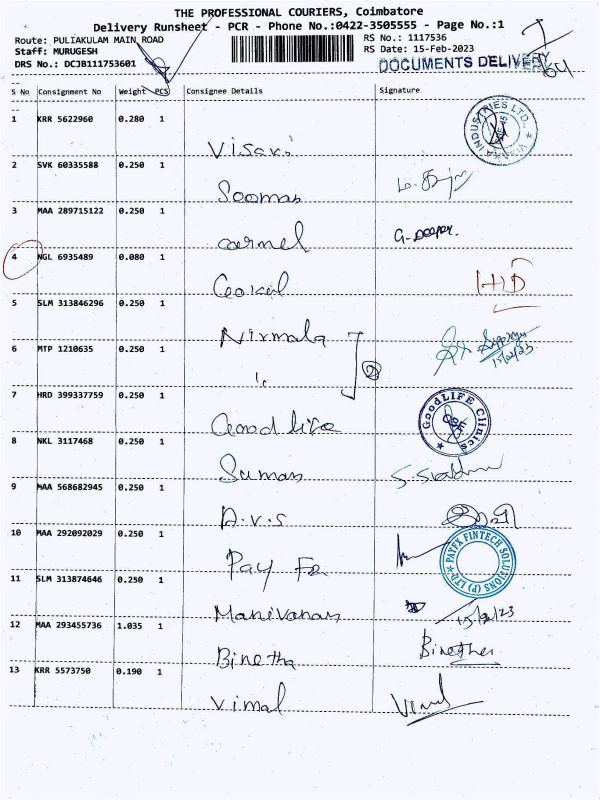 THE PROFESSIONAL COURIERS, Coimbatore
Delivery Runsheet - PCR - Phone No.:0422-3505555 - Page No.:1
Route: PULIAKULAM MAIN ROAD
RS No.: 1117536
Staff: MURUGESH
RS Date: 15-Feb-2023
DRS No.: DCJB111753601
DOCUMENTS DELIVERY
S No Consignment No Weight PCS Consignee Details Signature
1 KRR 5622960 0.280 1
Visaki
2 SVK 60335588 0.250 1
Soomas
3 MAA 289715122 0.250 1
carmel G. Deepa.
4 NGL 6935489 0.080 1
Gokul HD
5 SLM 313846296 0.250 1
Nirmala
6 MTP 1210635 0.250 1
" 2 15/02/23
7 HRD 399337759 0.250 1
Good life GoodLIFE Clinics
8 NKL 3117468 0.250 1
Suman
9 MAA 568682945 0.250 1
A.V.S
10 MAA 292092029 0.250 1
Pay Fx PAYFX FINTECH SOLUTIONS (P) LTD
11 SLM 313874646 0.250 1
Manivanan 15/2/23
12 MAA 293455736 1.035 1
Binetha
13 KRR 5573750 0.190 1
Vimal Vimal